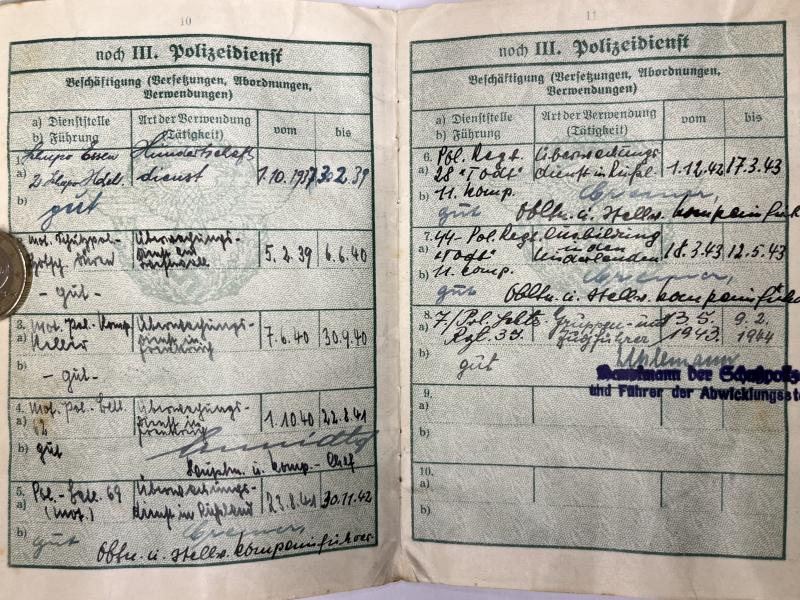 10
noch III. Polizeidienst
Beschäftigung (Versetzungen, Abordnungen,
Verwendungen)
a) Dienststelle
b) Führung
Art der Verwendung
(Tätigkeit)
vom
bis
1. Schupo Essen Hundertschafts
a) dienst 1.10.1937
b) gut
Mot. Schutzpol. Überwachungs-
5. 2. 39 6. 6. 40
- gut -
3. Mot. Pol. Komp. Überwachungs-
a) dienst in 7. 6. 40 30. 9. 40
b) - gut -
4. Mot. Pol. Batl. Überwachungs-
a) 62 dienst in 1. 10. 40 22. 8. 41
b) gut
Hauptm. u. Komp.- Chef
5. Pol.- Batl. 69 Überwachungs-
a) (mot.) dienst in Rußland 23. 8. 41 30. 11. 42
b) gut
Obltn. u. stellv. Kompanieführer
11
noch III. Polizeidienst
Beschäftigung (Versetzungen, Abordnungen,
Verwendungen)
a) Dienststelle
b) Führung
Art der Verwendung
(Tätigkeit)
vom
bis
6. Pol. Regt. Überwachungs-
a) 28 "Todt" dienst in Rußl. 1. 12. 42 17. 3. 43
b) 11. Komp.
gut Obltn. u. stellv. Kompanieführer
7. SS- Pol. Regt. Ausbildung
a) "Todt" in den Niederlanden 18. 3. 43 12. 5. 43
b) 11. Komp.
gut Obltn. u. stellv. Kompanieführer
8. 7./ Pol. Gruppen- und 13. 5. 9. 2.
a) Zugführer 1943. 1944
b) gut
Hauptmann der Schutzpoliz
und Führer der Abwicklungsste
9.
a)
b)
10.
a)
b)